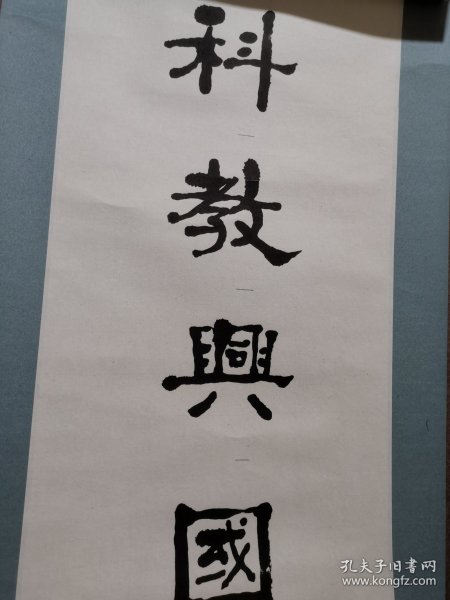 科教興國
孔夫子旧书网
www.kongfz.com